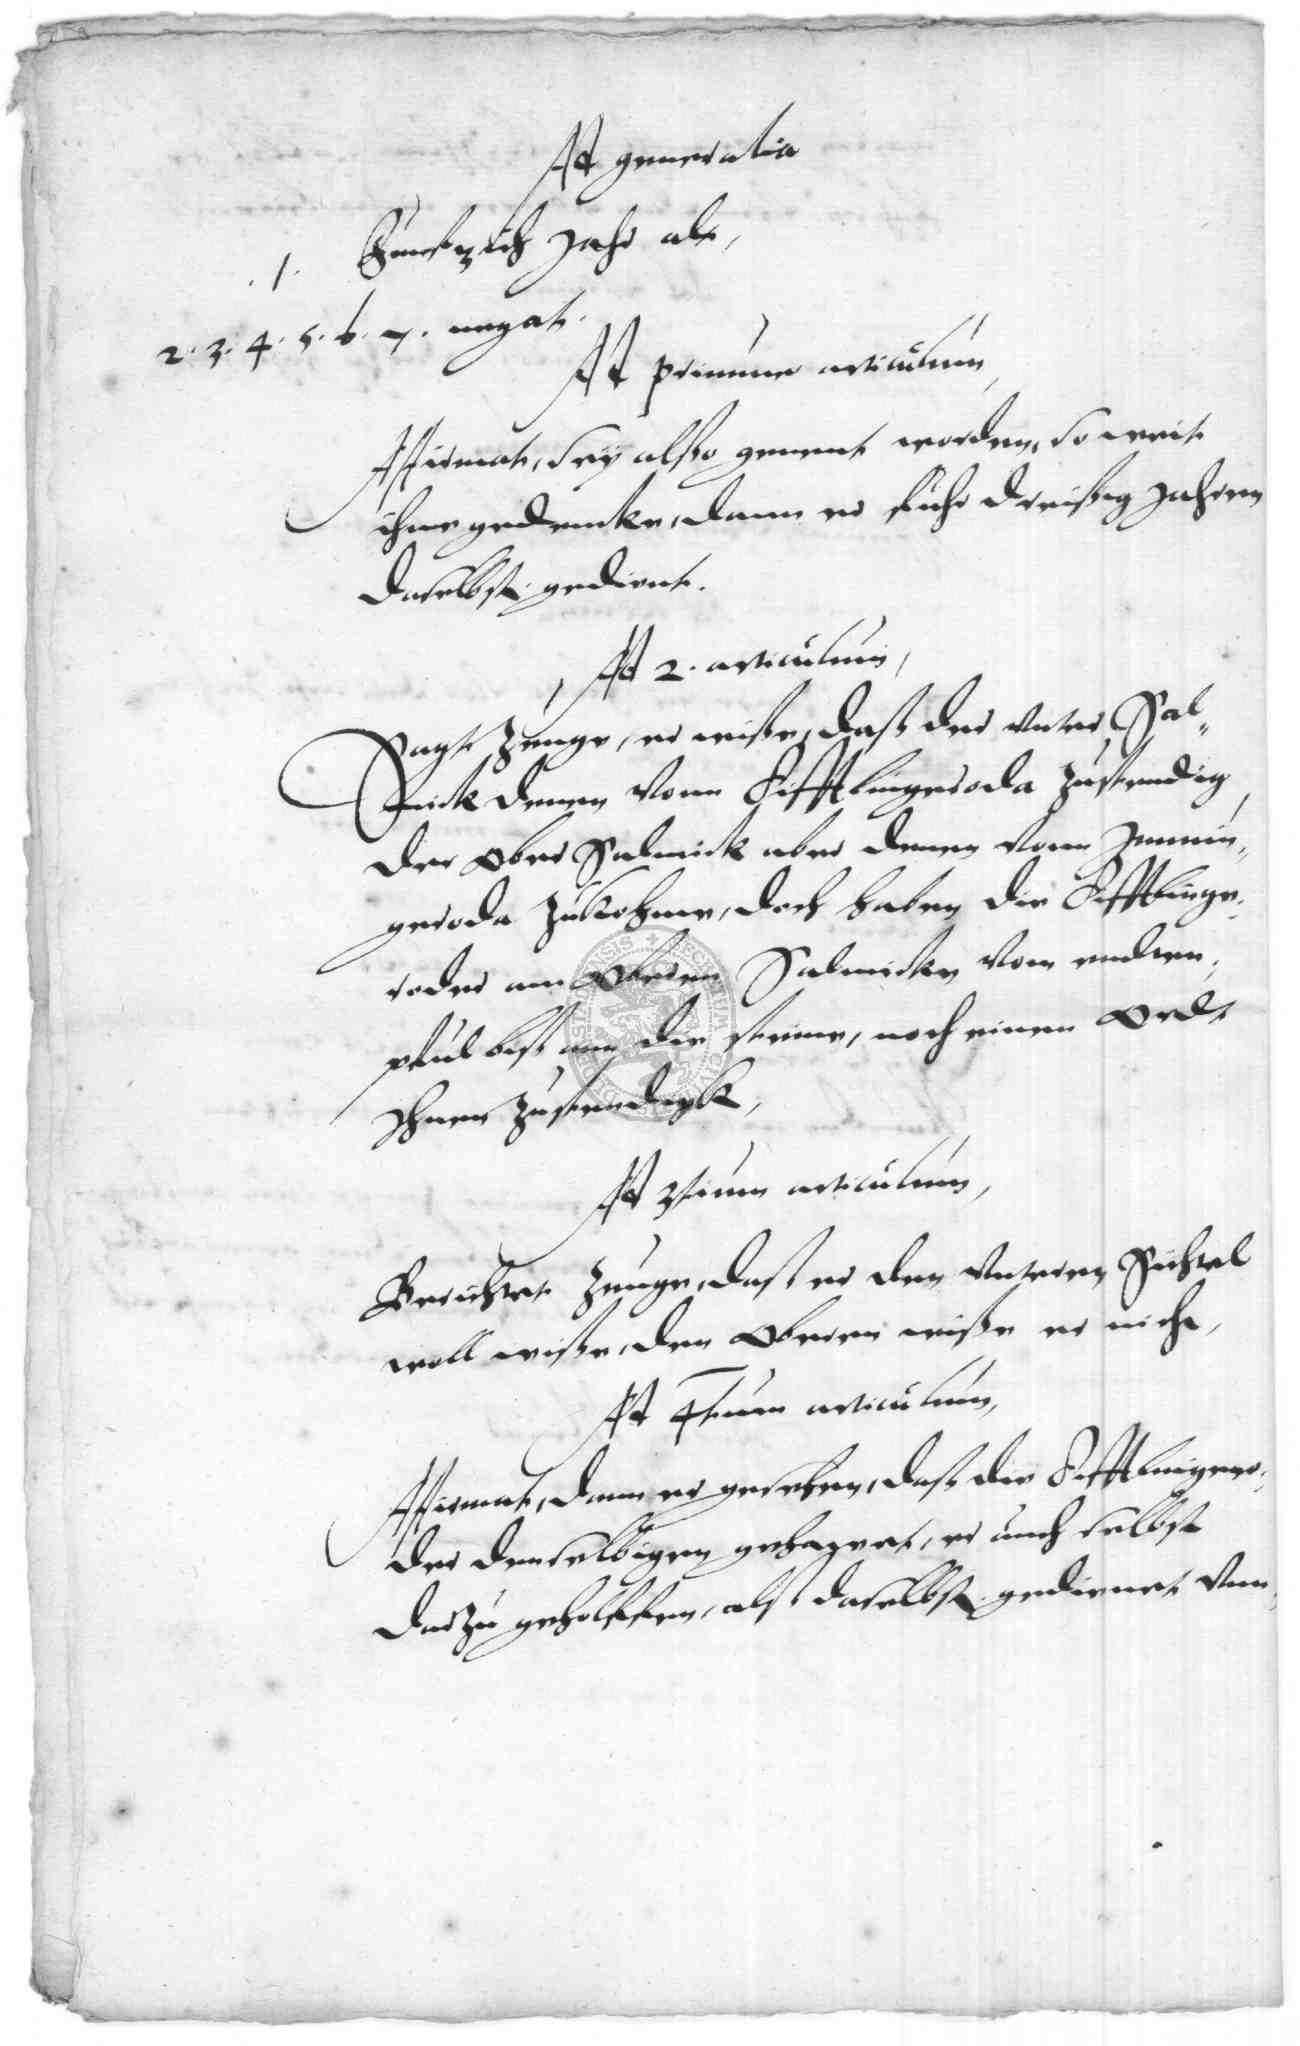 Ad generalia
.1. Funftzich Jahr alt,
2. 3. 4. 5. 6. 7. negat.
Ad primum articulum,
Affirmat, sey alßo genent worden, so weit
ihme gedencke, dann er fuhr dreißig Jahren
daselbst gedient.
Ad 2. articulum,
Sagt Zeuge, er wiße, daß der unter Sal„
mick denen vonn Tifftlingeroda zustendig,
der Ober Salmick aber denen vonn Immin„
geroda zukohme, doch haben die Tifftlinge„
roder am Obern Salmicke vom
pful biß ann die steine, noch einen Ordt
Ihnen zustendigk,
Ad 3tium articulum,
Berichtet Zeuge, daß er den Unteren Sichel
woll wiße, den Oberen wiße er nicht,
Ad 4tum articulum,
Affirmat, dann er gesehen, daß die Tifftlingero„
der denselbigen gehaget, er auch selbst
darzu geholffen, alß daselbst gedienet unn„
SIGILLUM CIVI